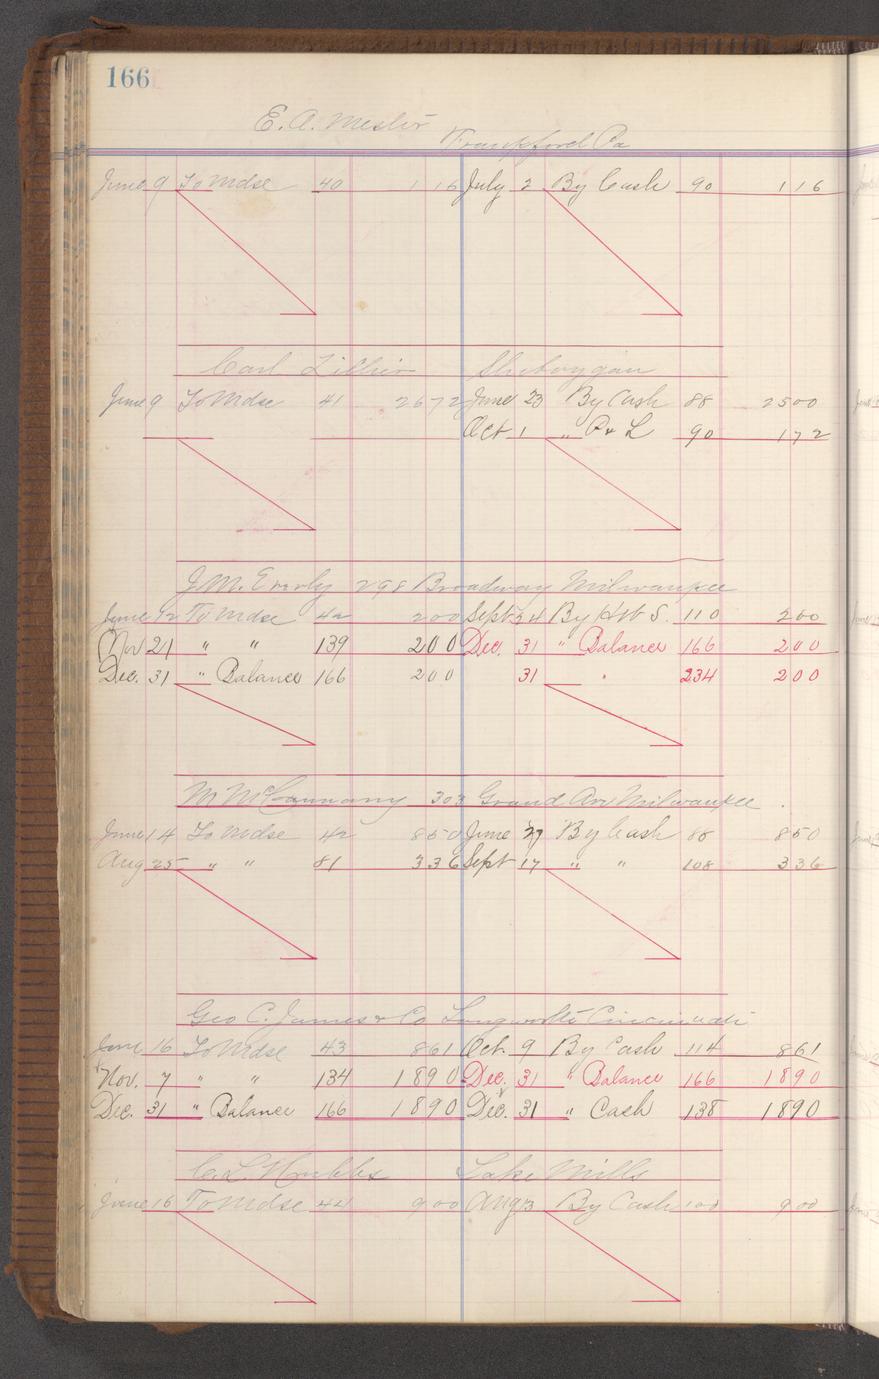 166
E. A. Mester Frankford Pa
June 9 To Mdse 40 116 July 2 By Cash 90 116
Carl Sheboygan
June 9 To Mdse 41 2672 June 23 By Cash 88 2500
Oct 1 " P & L 90 172
J. M. Everly 298 Broadway Milwaukee
June 12 To Mdse 42 200 Sept 24 By H W S. 110 200
Nov 21 " " 139 200 Dec. 31 " Balance 166 200
Dec. 31 " Balance 166 200 31 " 234 200
M McCannany 303 Grand Ave Milwaukee
June 14 To Mdse 42 850 June 27 By Cash 88 850
Aug 25 " " 81 336 Sept 17 " " 108 336
Geo C. James & Co Longworth St Cincinnati
June 16 To Mdse 43 861 Oct. 9 By Cash 114 861
Nov. 7 " " 134 1890 Dec. 31 " Balance 166 1890
Dec. 31 " Balance 166 1890 Dec. 31 " Cash 138 1890
C. L. Hubbs Lake Mills
June 16 To Mdse 44 900 Aug 13 By Cash 100 900